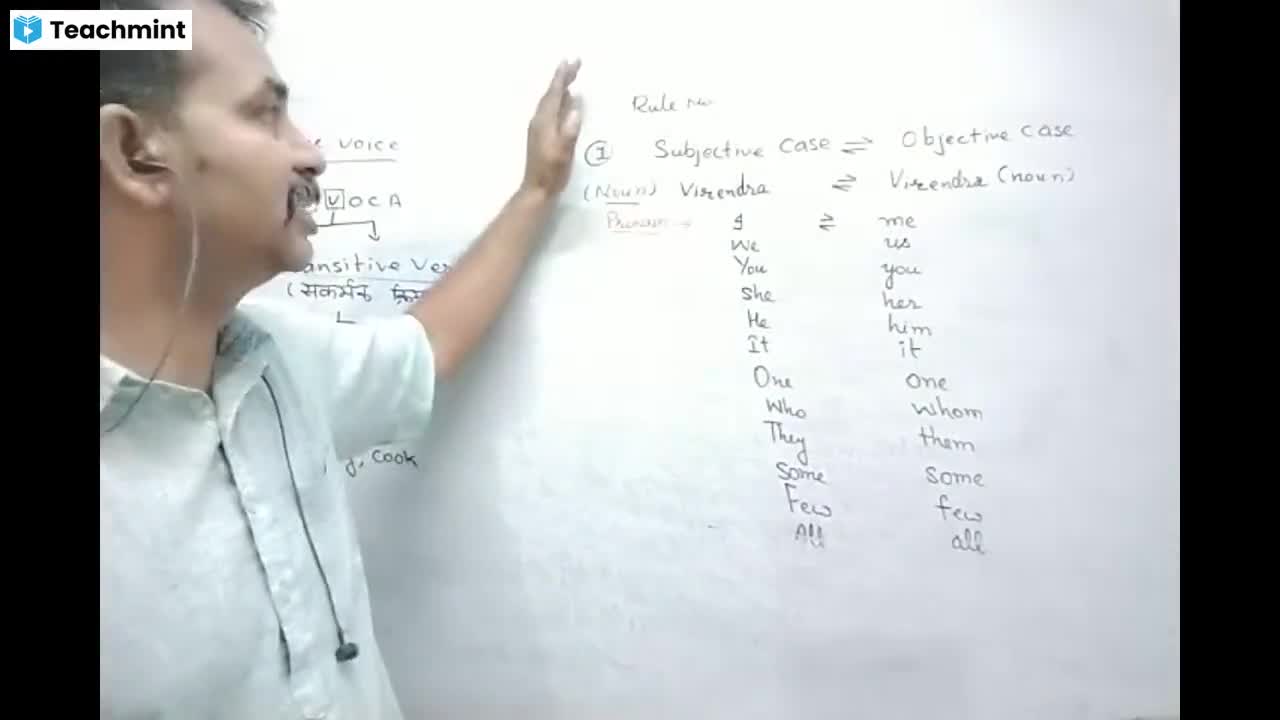 Teachmint
Voice
V O C A
ansitive Ver
(सकर्मक
Cook
Rule No
1 Subjective Case ⇌ Objective Case
(Noun) Virendra ⇌ Virendra (noun)
Pronoun → I ⇌ me
We us
You you
She her
He him
It it
One one
Who whom
They them
Some some
Few few
All all